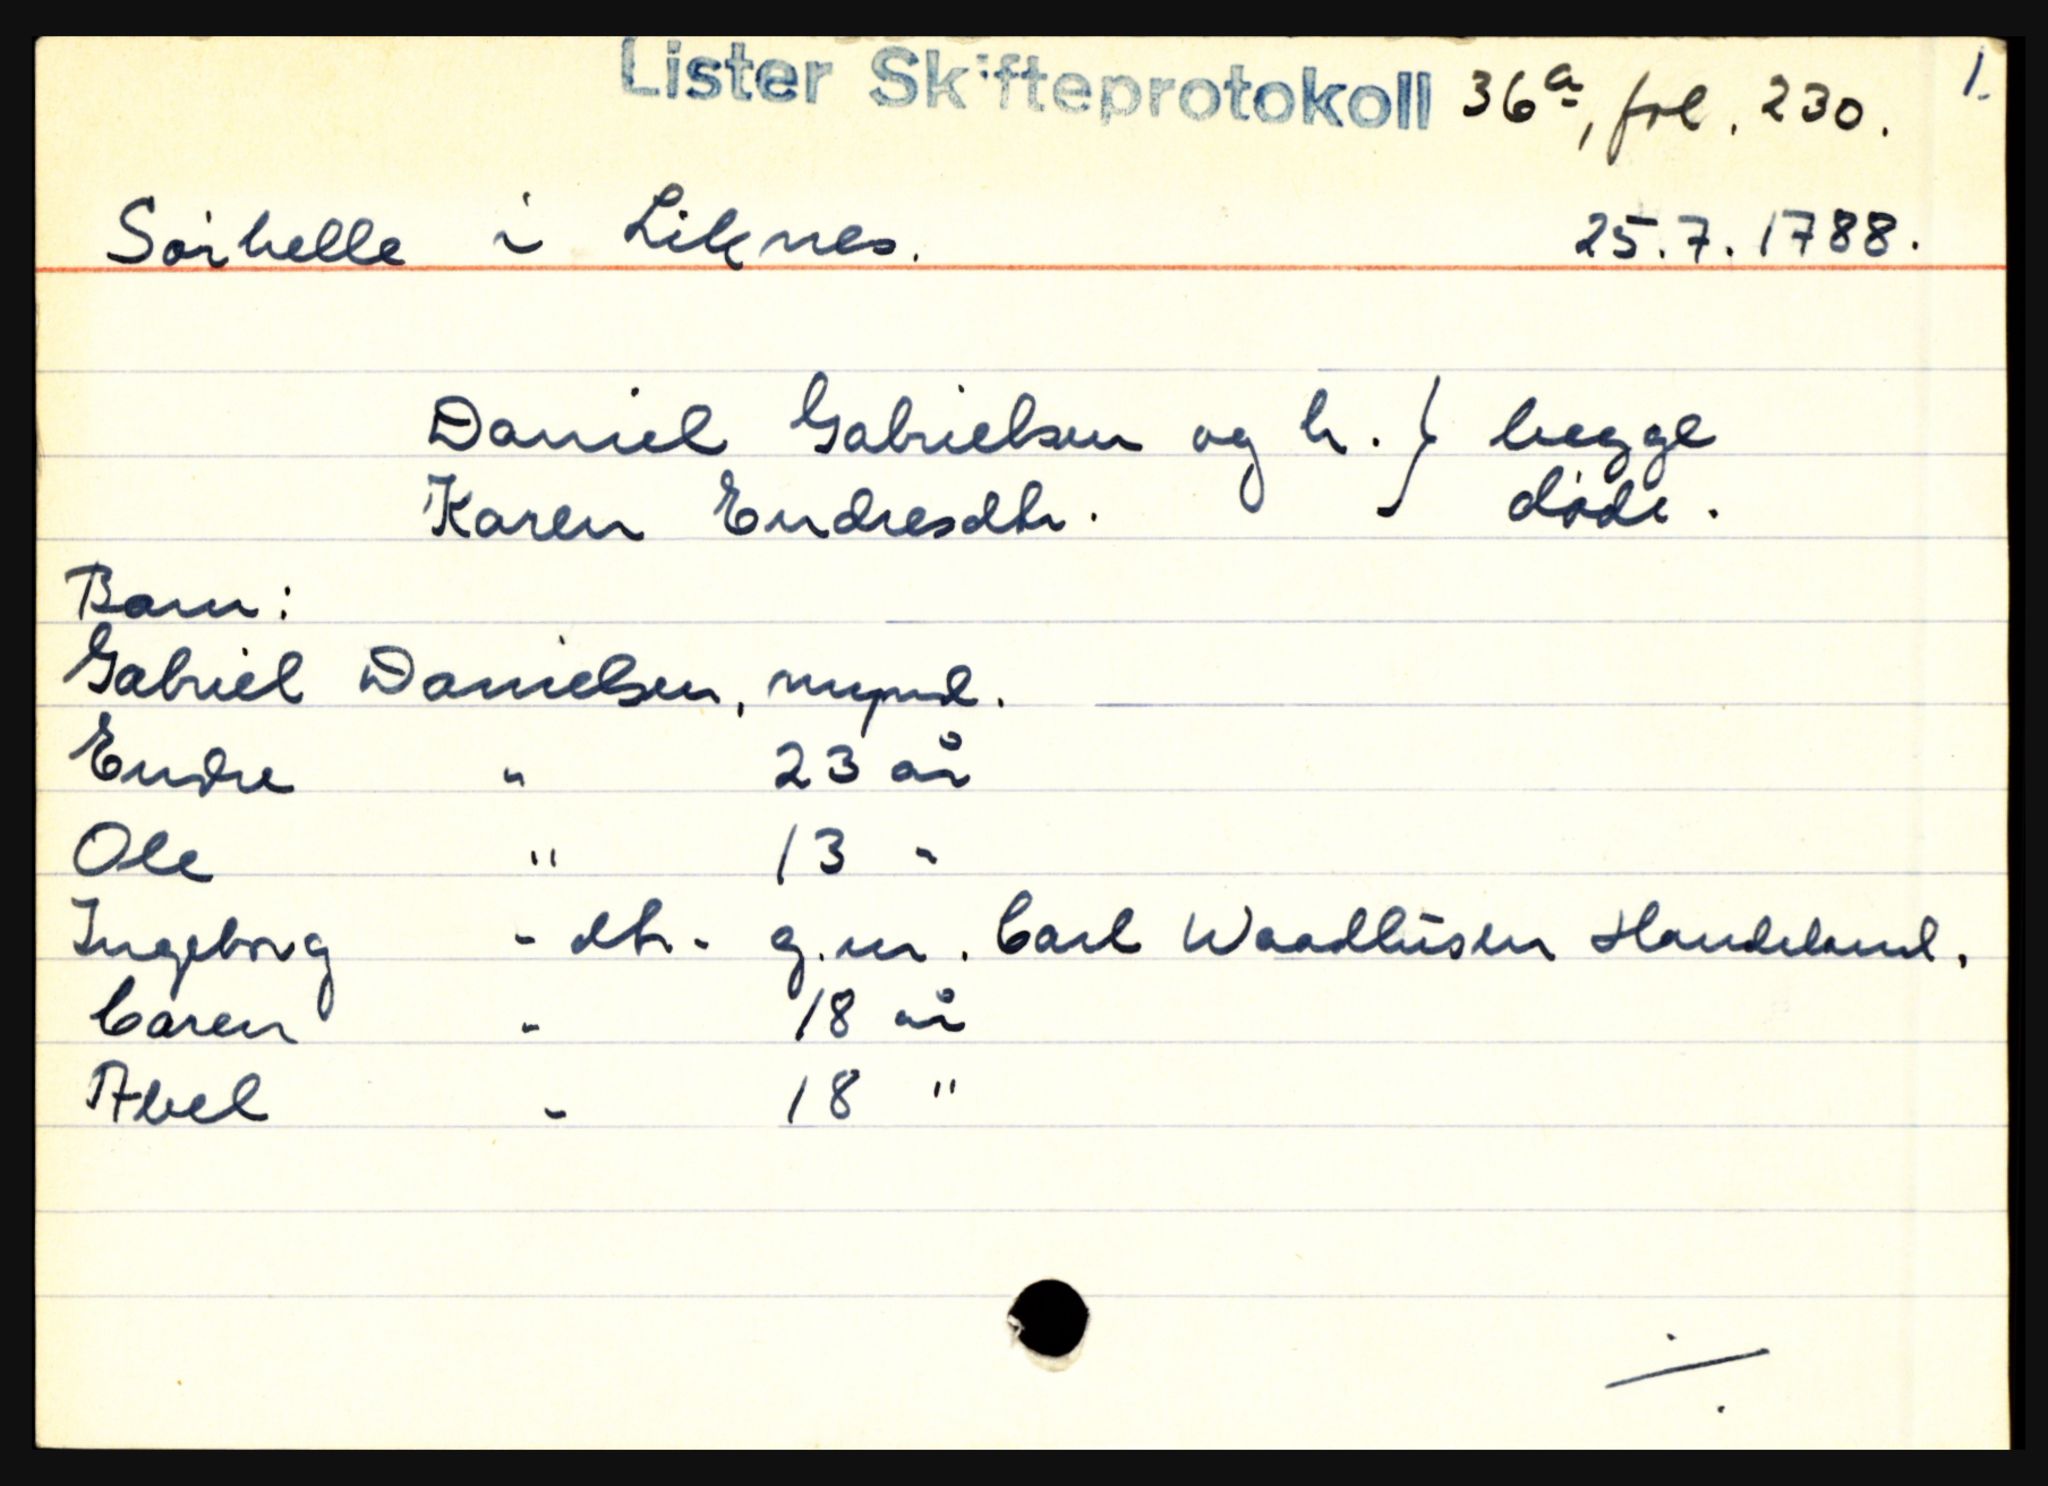 Lister Skifteprotokoll 36a, fol. 230. 1.
Sørhelle i Liknes. 25.7.1788.
Daniel Gabrielsen og h. } begge
Karen Endresdtr. } døde.
Barn:
Gabriel Danielsen, mynd.
Endre " 23 år
Ole " 13 "
Ingeborg " dtr. g.m. Carl Waadtüsen Handeland.
Caren " 18 år
Abel " 18 "